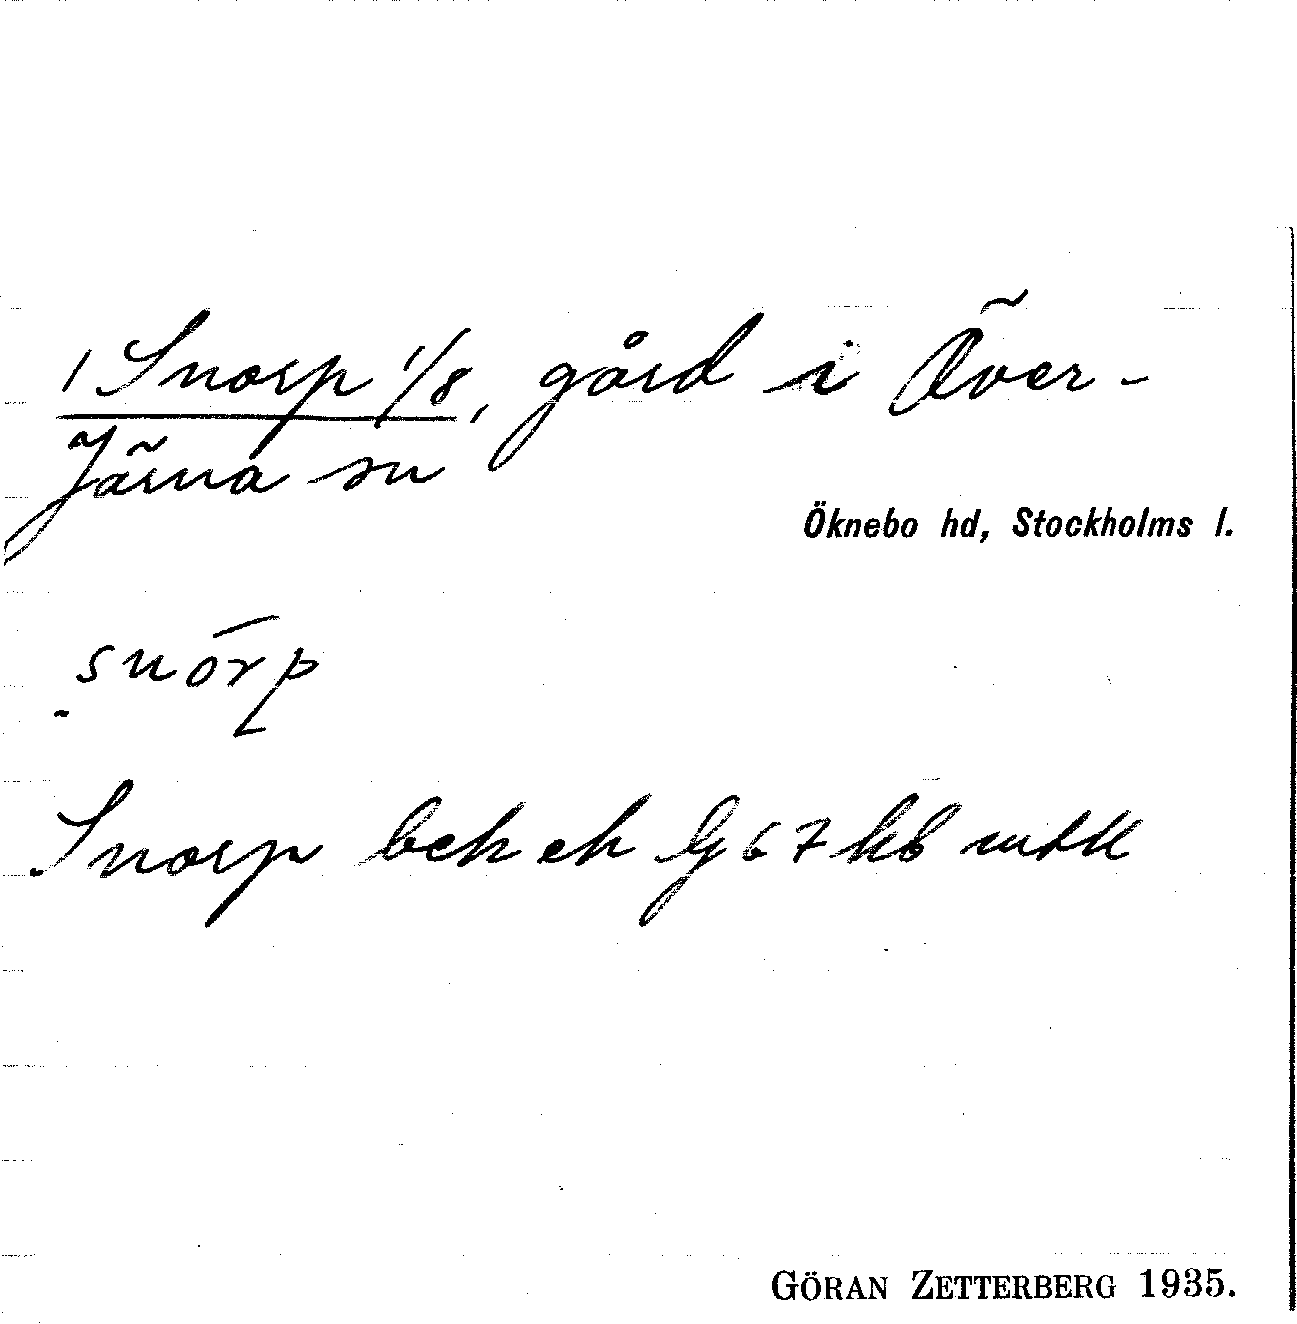 1 Snorp 1/8, gård i Över-
Järna sn
Öknebo hd, Stockholms l.
snórp
Snorp bck ek Gg 67 hb mtll
GÖRAN ZETTERBERG 1935.